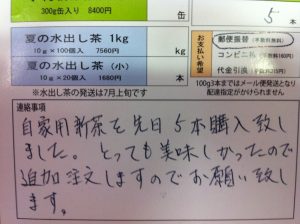 300g缶入り 8400円
缶
5
本
夏の水出し茶 1kg
10g×100個入 7560円
kg
夏の水出し茶（小）
10g×20個入 1680円
本
※水出し茶の発送は7月上旬です
お支払い希望
郵便振替
コンビニ
代金引換
100g3本まではメール便発送となり
配達指定がかけられません
連絡事項
自家用新茶を先日5本購入致し
ました。とっても美味しかったので
追加注文しますのでお願い致し
ます。